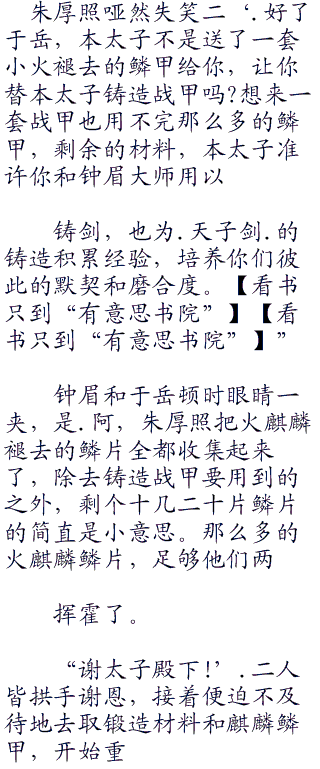 朱厚照哑然失笑二‘.好了
于岳，本太子不是送了一套
小火褪去的鳞甲给你，让你
替本太子铸造战甲吗?想来一
套战甲也用不完那么多的鳞
甲，剩余的材料，本太子准
许你和钟眉大师用以
铸剑，也为.天子剑.的
铸造积累经验，培养你们彼
此的默契和磨合度。【看书
只到“有意思书院”】【看
书只到“有意思书院”】”
钟眉和于岳顿时眼睛一
夹，是.阿，朱厚照把火麒麟
褪去的鳞片全都收集起来
了，除去铸造战甲要用到的
之外，剩个十几二十片鳞片
的简直是小意思。那么多的
火麒麟鳞片，足够他们两
挥霍了。
“谢太子殿下!’.二人
皆拱手谢恩，接着便迫不及
待地去取锻造材料和麒麟鳞
甲，开始重